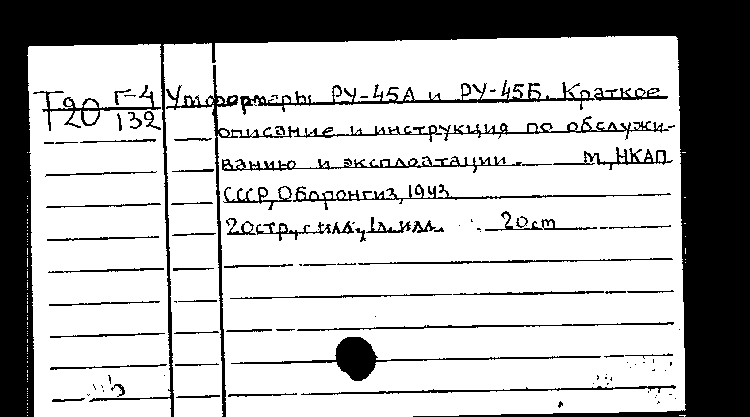 Т20 Г-4 Умформеры РУ-45А и РУ-45Б. Краткое
132 описание и инструкция по обслужи-
ванию и эксплоатации. М., НКАП
СССР, Оборонгиз, 1943
20стр., с илл., 1л. илл. 20cm